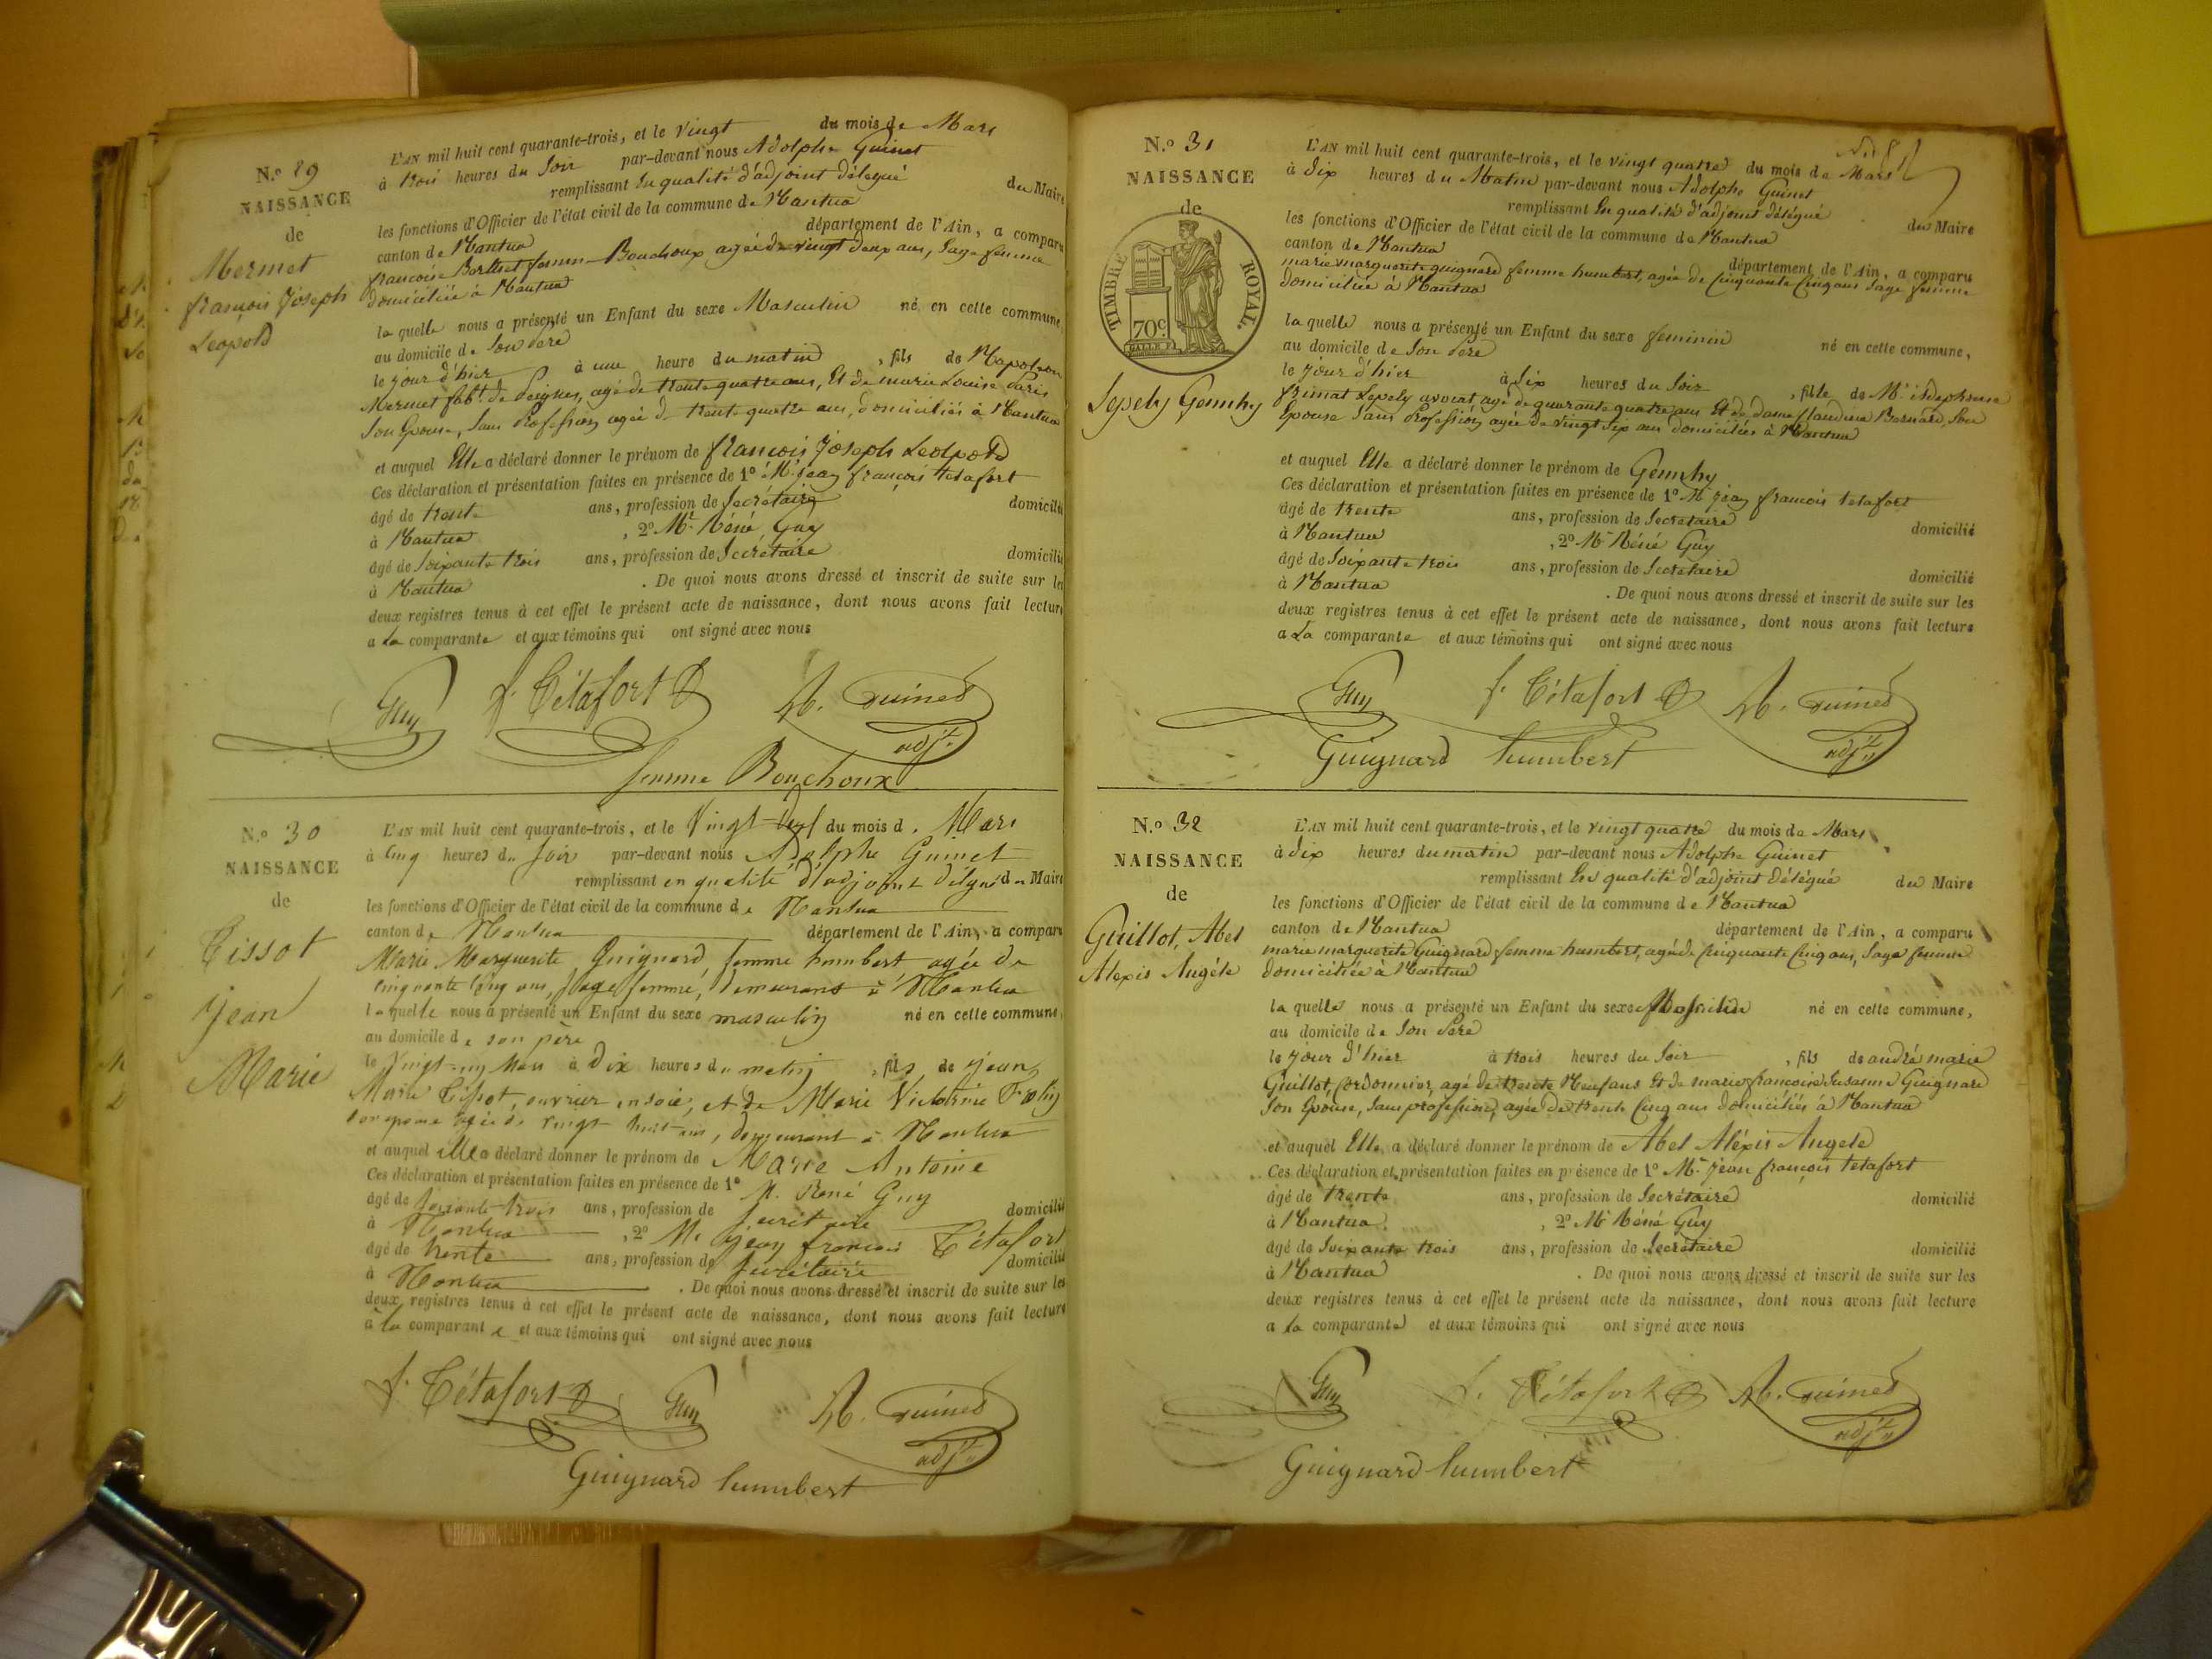 N.º 29
NAISSANCE
de
Mermet
françois Joseph
Leopold
L'AN mil huit cent quarante-trois, et le vingt du mois de Mars
à trois heures du Soir par-devant nous Adolphe Guinet
remplissant En qualité d'adjoint délégué du Maire
les fonctions d'Officier de l'état civil de la commune de Nantua
canton de Nantua département de l'Ain, a comparu
françoise Barthet femme Bouchoux agée de vingt deux ans, Sage femme
domiciliée à Nantua
la quelle nous a présenté un Enfant du sexe Masculin né en cette commune,
au domicile de Son Père
le jour d'hier à une heure du matin, fils de Napoleon
Mermet fabt. de Peignes, agé de trente quatre ans, Et de marie Louise
Son Epouse, Sans Profession agée de trente quatre ans, domiciliés à Nantua
et auquel Elle a déclaré donner le prénom de françois Joseph Leolpold
Ces déclaration et présentation faites en présence de 1º Mr. jean françois tetafort
âgé de trente ans, profession de Secrétaire domicilié
à Nantua, 2º Mr. Réné Guy
âgé de Soixante trois ans, profession de Secrétaire domicilié
à Nantua. De quoi nous avons dressé et inscrit de suite sur les
deux registres tenus à cet effet le présent acte de naissance, dont nous avons fait lecture
a La comparante et aux témoins qui ont signé avec nous
Guy f. Tétafort A. Guinet
adjt.
femme Bouchoux
N.º 30
NAISSANCE
de
Tissot
Jean
Marie
L'AN mil huit cent quarante-trois, et le Vingt-deux du mois de Mars
à Cinq heures du Soir par-devant nous Adolphe Guinet
remplissant en qualité d'adjoint délégué du Maire
les fonctions d'Officier de l'état civil de la commune de Nantua
canton de Nantua département de l'Ain, a comparu
Marie Marguerite Guignard femme humbert agée de
Cinquante Cinq ans, Sage femme, demeurant à Nantua
laquelle nous a présenté un Enfant du sexe masculin né en cette commune,
au domicile de son père
le Vingt-un mars à Dix heures du matin, fils de Jean
Marie Tissot, ouvrier en soie, et de Marie Victorine
son epouse agée de vingt huit ans, demeurant à Nantua
et auquel elle a déclaré donner le prénom de Marie Antoine
Ces déclaration et présentation faites en présence de 1º M. René Guy
âgé de soixante trois ans, profession de Secrétaire domicilié
à Nantua, 2º M. Jean francois Tétafort
âgé de trente ans, profession de Secrétaire domicilié
à Nantua. De quoi nous avons dressé et inscrit de suite sur les
deux registres tenus à cet effet le présent acte de naissance, dont nous avons fait lecture
à la comparante et aux témoins qui ont signé avec nous
f. Tétafort Guy A. Guinet
adjt.
Guignard humbert
N.º 31
NAISSANCE
de
TIMBRE ROYAL.
70c.
Lepely Gemhy
L'AN mil huit cent quarante-trois, et le vingt quatre du mois de Mars
à Dix heures du Matin par-devant nous Adolphe Guinet
remplissant En qualité d'adjoint délégué du Maire
les fonctions d'Officier de l'état civil de la commune de Nantua
canton de Nantua département de l'Ain, a comparu
marie marguerite guignard femme humbert, agée de Cinquante Cinq ans Sage femme
domiciliée à Nantua
la quelle nous a présenté un Enfant du sexe feminin né en cette commune,
au domicile de Son Père
le jour d'hier à Six heures du Soir, fille de Mr.
frimat Lepely avocat, agé de quarante quatre ans Et de dame Claudine Bernard, Son
Epouse Sans Profession, agée de vingt Six ans domiciliés à Nantua
et auquel Elle a déclaré donner le prénom de Gemhy
Ces déclaration et présentation faites en présence de 1º Mr. jean françois tetafort
âgé de trente ans, profession de Secretaire domicilié
à Nantua, 2º Mr. Réné Guy
âgé de Soixante trois ans, profession de Secretaire domicilié
à Nantua. De quoi nous avons dressé et inscrit de suite sur les
deux registres tenus à cet effet le présent acte de naissance, dont nous avons fait lecture
a La comparante et aux témoins qui ont signé avec nous
Guy f. Tétafort A. Guinet
adjt.
Guignard humbert
N.º 32
NAISSANCE
de
Guillot, Abel
Alexis Angéle
L'AN mil huit cent quarante-trois, et le vingt quatre du mois de Mars
à Dix heures du matin par-devant nous Adolphe Guinet
remplissant En qualité d'adjoint délégué du Maire
les fonctions d'Officier de l'état civil de la commune de Nantua
canton de Nantua département de l'Ain, a comparu
marie marguerite Guignard femme humbert, agé de Cinquante Cinq ans, Sage femme
domiciliée à Nantua
la quelle nous a présenté un Enfant du sexe né en cette commune,
au domicile de Son Père
le jour d'hier à trois heures du Soir, fils de andré marie
Guillot, Cordonnier, agé de trente Neuf ans Et de marie françoise Susanne Guignard
Son Epouse, Sans profession, agée de trente Cinq ans domiciliés à Nantua
et auquel Elle a déclaré donner le prénom de Abel Aléxis Angele
Ces déclaration et présentation faites en présence de 1º Mr. jean françois tetafort
âgé de trente ans, profession de Secrétaire domicilié
à Nantua, 2º Mr Réné Guy
âgé de Soixante trois ans, profession de Secrétaire domicilié
à Nantua. De quoi nous avons dressé et inscrit de suite sur les
deux registres tenus à cet effet le présent acte de naissance, dont nous avons fait lecture
a la comparante et aux témoins qui ont signé avec nous
Guy f. Tétafort A. Guinet
adjt.
Guignard humbert